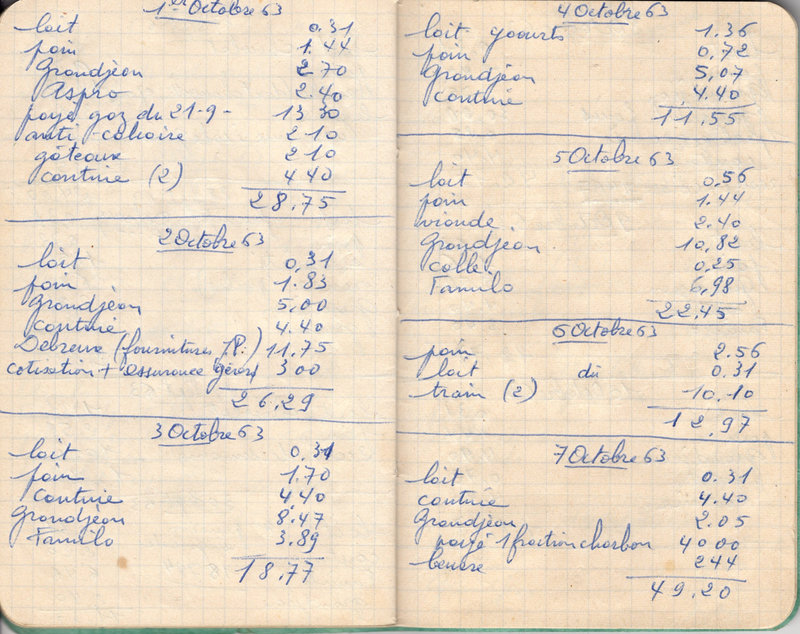 1er Octobre 63
lait 0.31
pain 1.44
Grandjean 2 70
Aspro 2.40
payé gaz du 21-9- 13 30
anti 2 10
gâteaux 2 10
cantine (2) 4 40
28.75
2 Octobre 63
lait 0.31
pain 1.83
Grandjean 5.00
cantine 4.40
(fournitures J.P.) 11.75
cotisation + assurance 3 00
26.29
3 Octobre 63
lait 0.31
pain 1.70
cantine 4 40
Grandjean 8.47
Familo 3.89
18.77
4 Octobre 63
lait yaourts 1.36
pain 0.72
Grandjean 5,07
cantine 4.40
11.55
5 Octobre 63
lait 0.56
pain 1.44
viande 2.40
Grandjean 10,82
colle 0.25
Familo 6,98
22.45
6 Octobre 63
pain 2.56
lait dû 0.31
train (2) 10.10
12,97
7 Octobre 63
lait 0.31
cantine 4.40
Grandjean 2.05
payé 1 fraction charbon 40 00
beurre 2 44
49.20